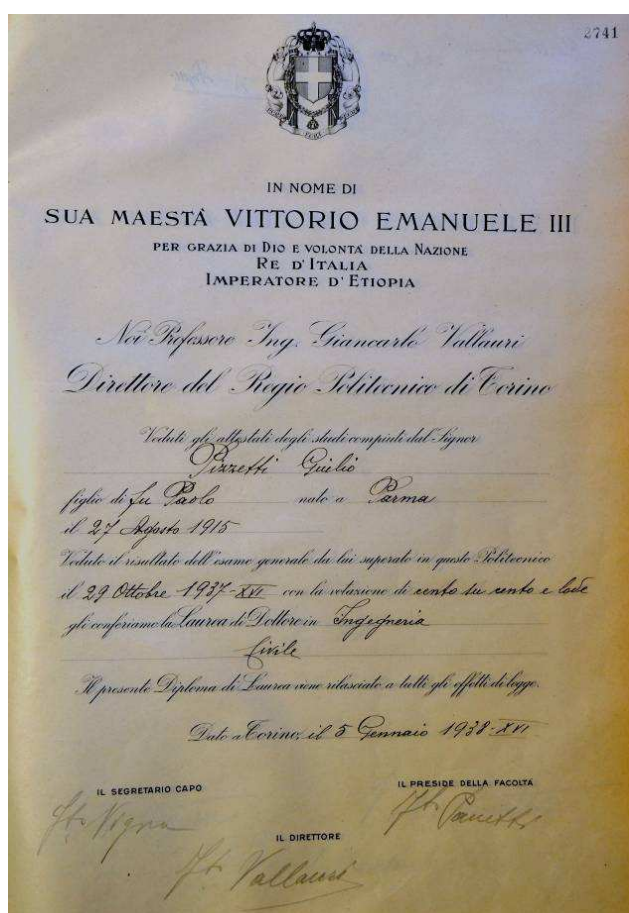 2741
FERT
IN NOME DI
SUA MAESTÀ VITTORIO EMANUELE III
PER GRAZIA DI DIO E VOLONTÀ DELLA NAZIONE
RE D'ITALIA
IMPERATORE D'ETIOPIA
Noi Professore Ing. Giancarlo Vallauri
Direttore del Regio Politecnico di Torino
Veduti gli attestati degli studi compiuti dal Signor
Pizzetti Giulio
figlio di fu Paolo nato a Parma
il 27 Agosto 1915
Veduto il risultato dell'esame generale da lui superato in questo Politecnico
il 29 Ottobre 1937-XVI con la votazione di cento su cento e lode
gli conferiamo la Laurea di Dottore in Ingegneria
Civile
Il presente Diploma di Laurea viene rilasciato a tutti gli effetti di legge.
Dato a Torino, il 5 Gennaio 1938-XVI
IL SEGRETARIO CAPO
IL PRESIDE DELLA FACOLTÀ
fto Vigna
fto Panetti
IL DIRETTORE
fto Vallauri